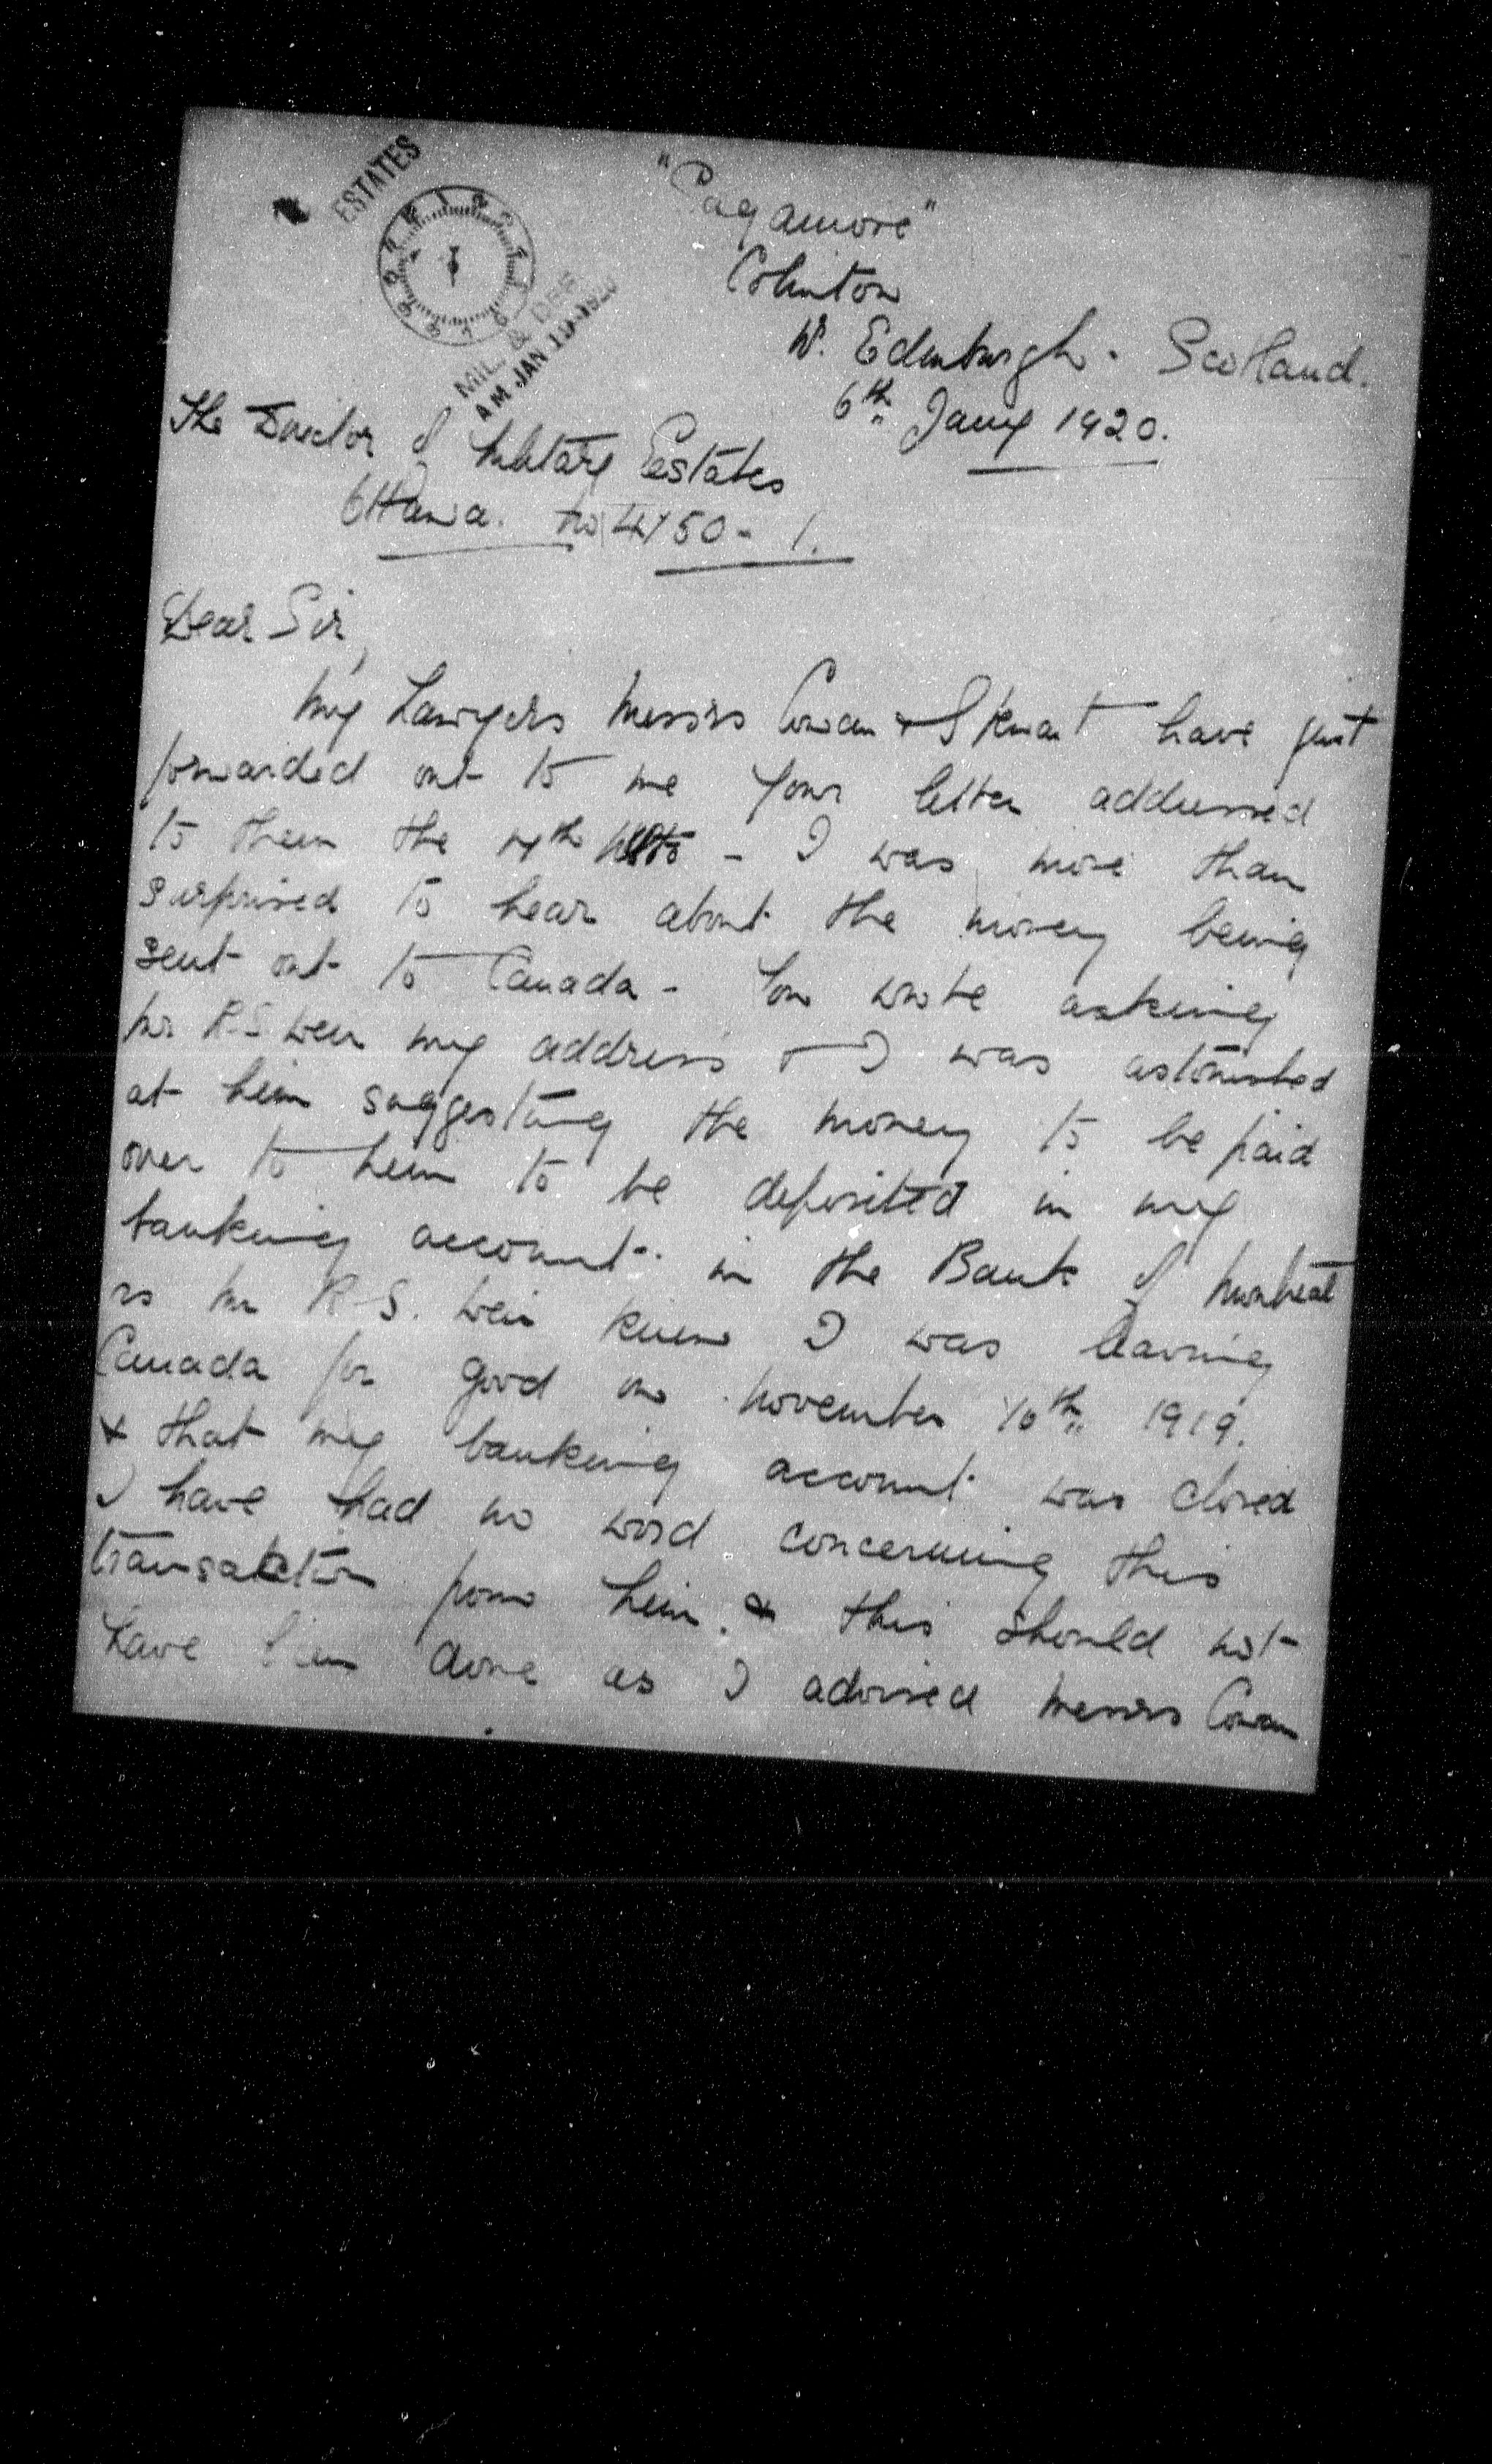 ESTATES
MIL. & DEF.
AM JAN 19 1920
"Pagamore"
Colinton
W. Edinburgh. Scotland.
6th Jany 1920.
The Director of Military Estates
Ottawa. 4750-1.
Dear Sir,
My Lawyers Messrs Cowan & Stewart have just
forwarded out to me your letter addressed
to them the 17th - I was more than
surprised to hear about the money being
sent out to Canada - You wrote asking
Mr R.S. Weir my address & I was astonished
at him suggesting the money to be paid
over to him to be deposited in my
banking account. in the Bank of Montreal
as Mr R.S. Weir knew I was leaving
Canada for good on November 10th 1919.
& that my banking account was closed
I have had no word concerning this
transaction from him. & this should not
have been done as I advised Messrs Cowan